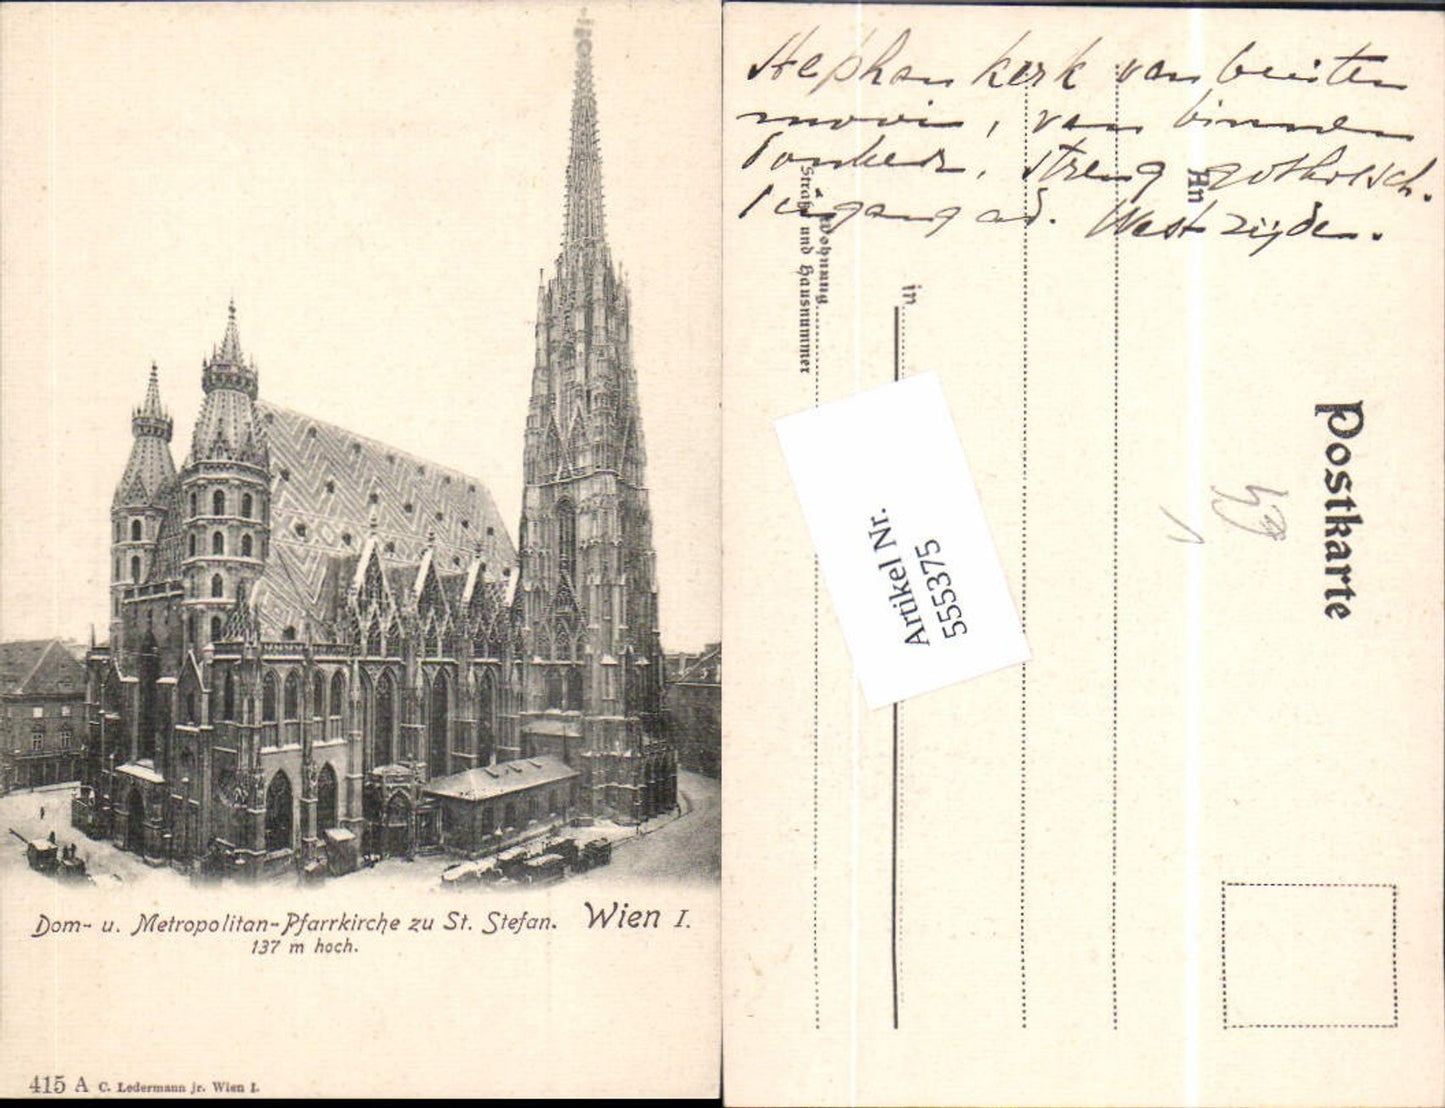 Dom- u. Metropolitan-Pfarrkirche zu St. Stefan. Wien I.
137 m hoch.
415 A C. Ledermann jr. Wien I.
Stephan kerk van buiten
mooi, van binnen
donker, streng gothisch.
Ingang ad. West zijde.
Postkarte
An
in
Wohnung
Straße und Hausnummer
Artikel Nr.
555375